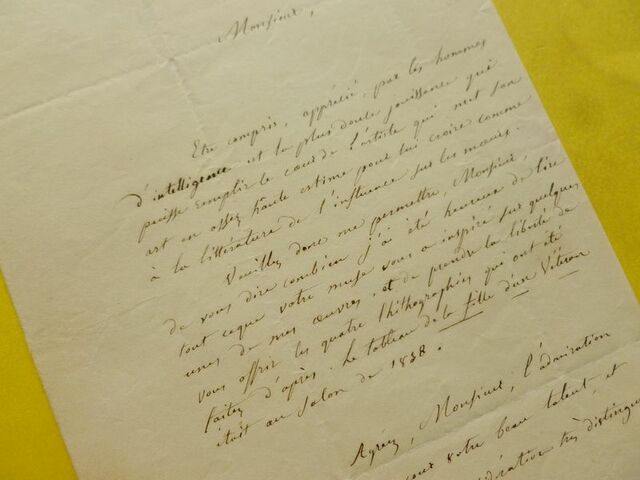 Monsieur,
Etre compris, apprécié, par les hommes
d'intelligence est la plus douce jouissance qui
puisse remplir le cœur de l'artiste qui met son
art en assez haute estime pour lui croire comme
à la littérature de l'influence sur les mœurs.
Veuillez donc me permettre, Monsieur,
de vous dire combien j'ai été heureux de lire
tout ce que votre muse vous a inspiré sur quelques
unes de mes œuvres, et de prendre la liberté de
vous offrir les quatre lithographies qui ont été
faites d'après. Le tableau de la fille d'un Vétéran
était au salon de 1838.
Agréez, Monsieur, l'admiration
pour votre beau talent, et
très distingué